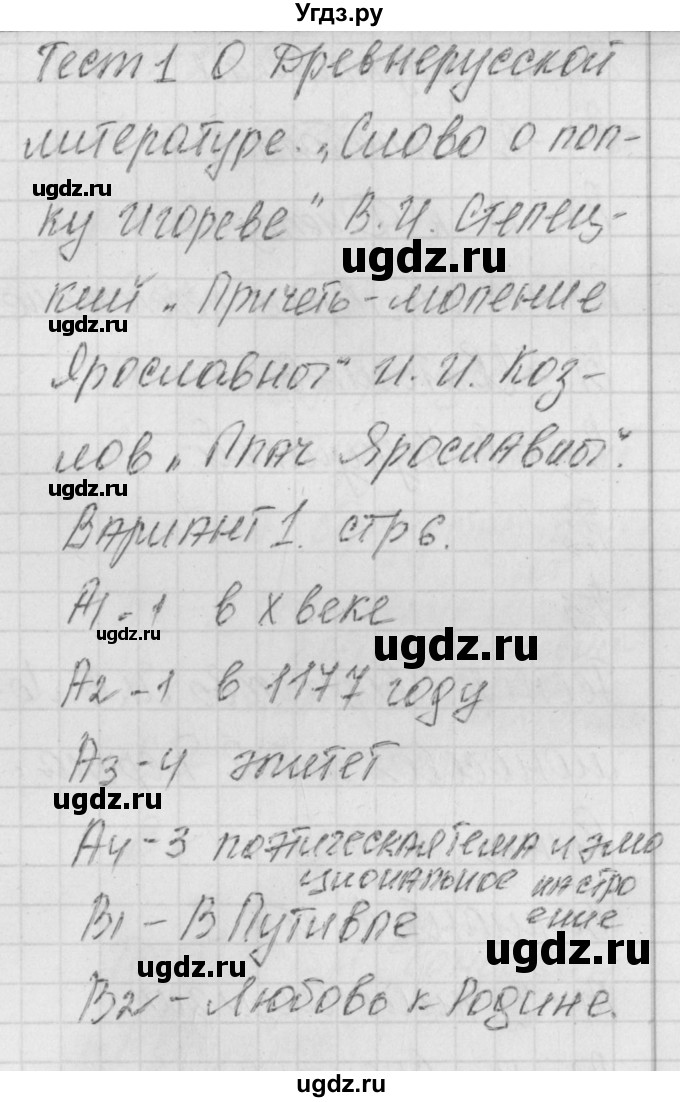 Угдз.ру
Тест 1 О Древнерусской
литературе. „Слово о пол-
ugdz.ru
ку Игореве" В.И. Стелец-
ugdz.ru
кий „Причеть-моление
ugdz.ru
Ярославны" И.И. Коз-
лов „Плач Ярославны".
ugdz.ru
Вариант 1. стр 6.
А1-1 в X веке
ugdz.ru
ugdz.ru
А2-1 в 1177 году
А3-4 эпитет
ugdz.ru
А4-3 поэтическая тема и эмо
циональное настро
ение
В1 - В Путивле
ugdz.ru
ugdz.ru
В2 - Любовь к Родине.
ugdz.ru